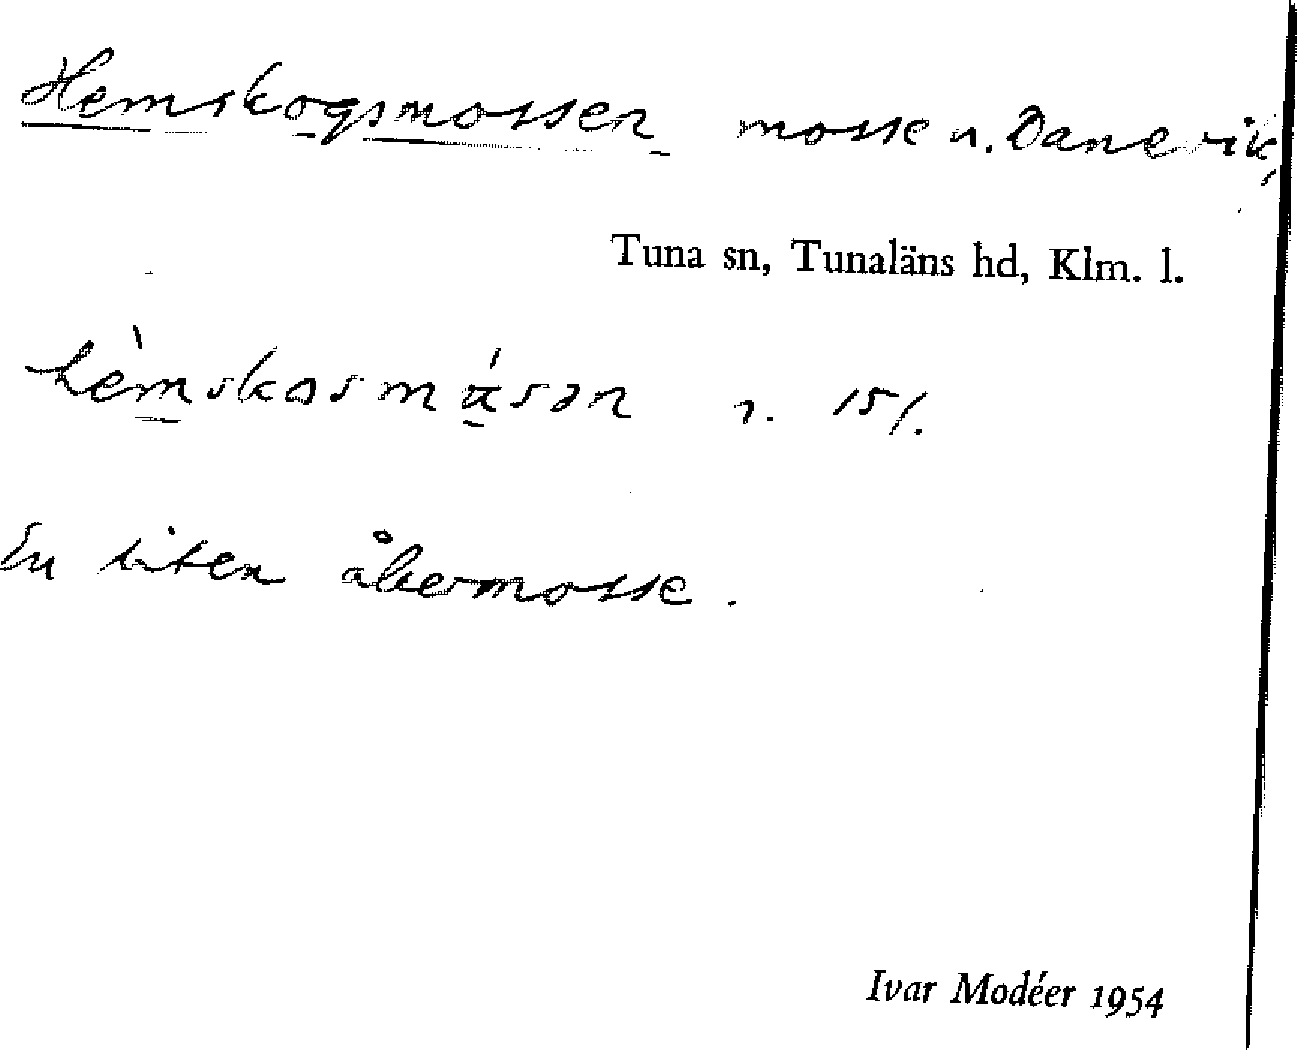 Hemskogsmossen mosse u. Danevik,
Tuna sn, Tunaläns hd, Klm. l.
En liten åkermosse.
Ivar Modéer 1954